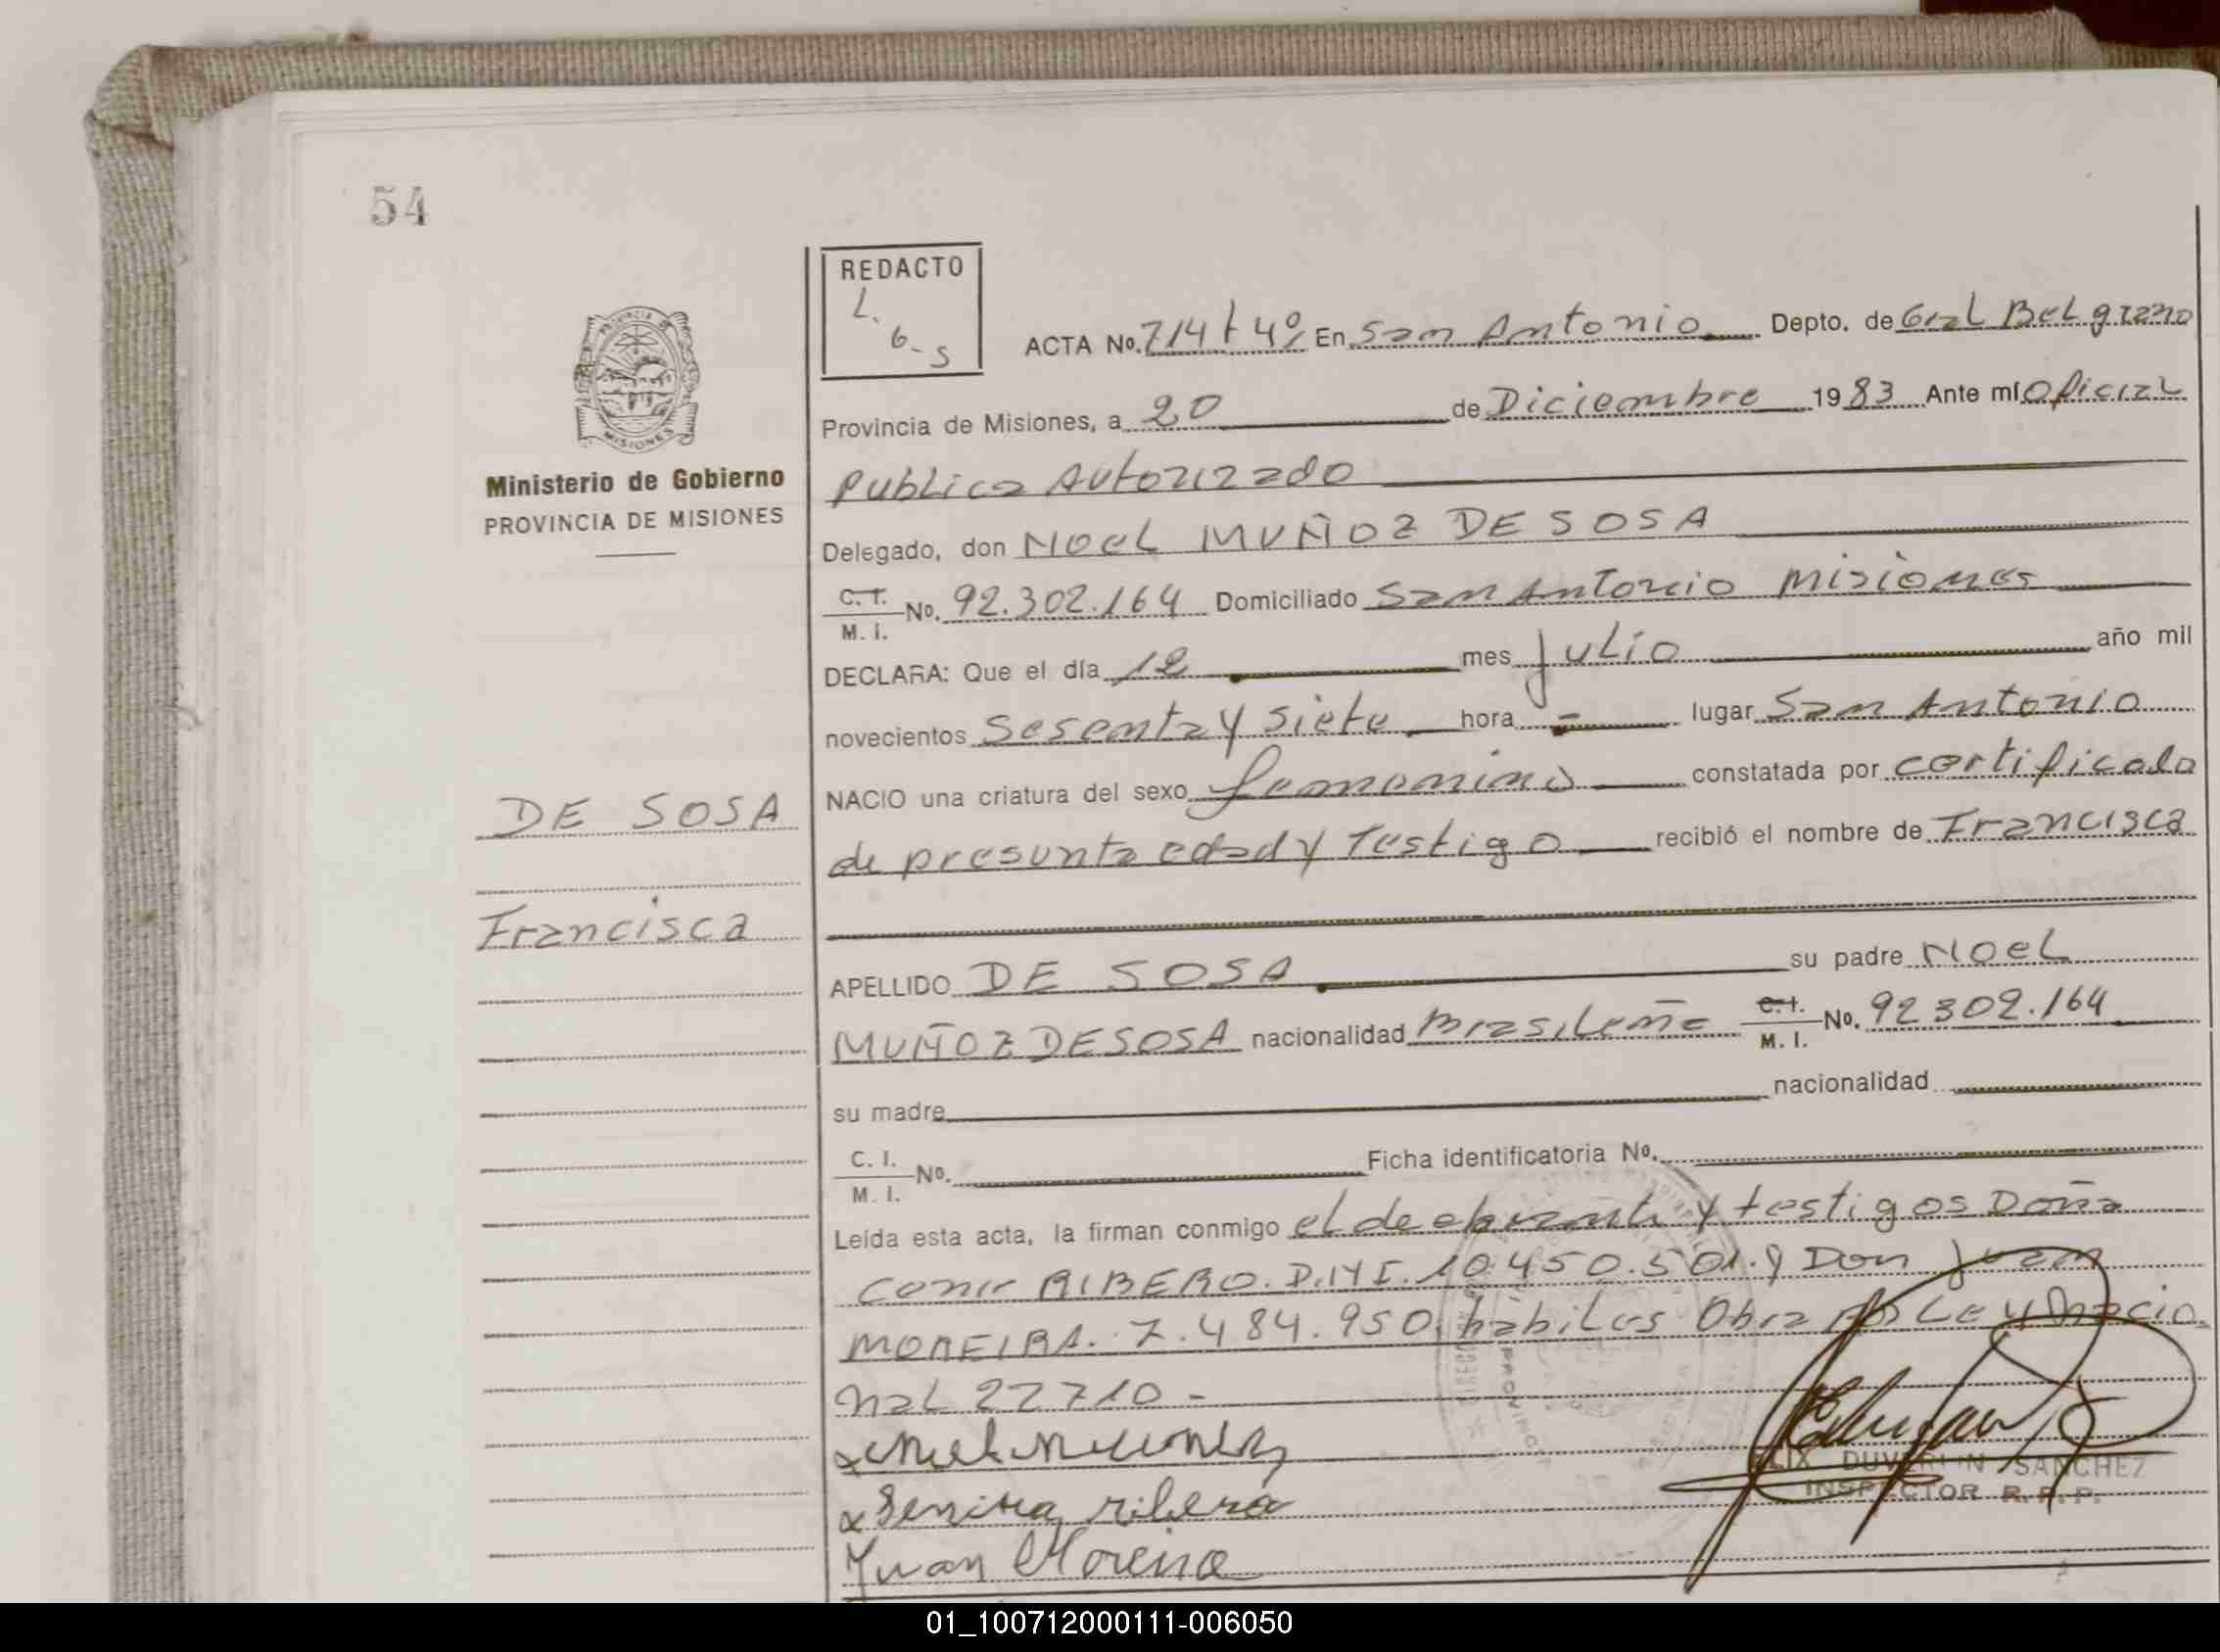 54
REDACTO
L.
G-S
ACTA No. 714 t 4º En San Antonio Depto. de Gral Belgrano
Provincia de Misiones, a 20 de Diciembre 1983 Ante mí Oficial
Publico Autorizado
MISIONES
Ministerio de Gobierno
PROVINCIA DE MISIONES
Delegado, don Noel MUÑOZ DE SOSA
C. I. M. I. No. 92.302.164 Domiciliado San Antonio Misiones
DECLARA: Que el día 12 mes Julio año mil
novecientos Sesenta y Siete hora - lugar San Antonio
NACIO una criatura del sexo femenino constatada por certificado
DE SOSA
de presunta edad y Testigo recibió el nombre de Francisca
Francisca
APELLIDO DE SOSA su padre Noel
MUÑOZ DE SOSA nacionalidad Brasileña C.I. M. I. No. 92302.164
su madre nacionalidad
C. I. M. I. No. Ficha identificatoria No.
Leída esta acta, la firman conmigo el declarante y testigos Doña
RIBERO. D.N I. 10.450.501. y Don Juan
MOREIRA. 7.484.950. habiles Obra Ley Nacio
nal 22710 -
x
x Benita ribero
Juan Moreira
FELIX DUVERLIN SANCHEZ
INSPECTOR R.P.P.
01_100712000111-006050